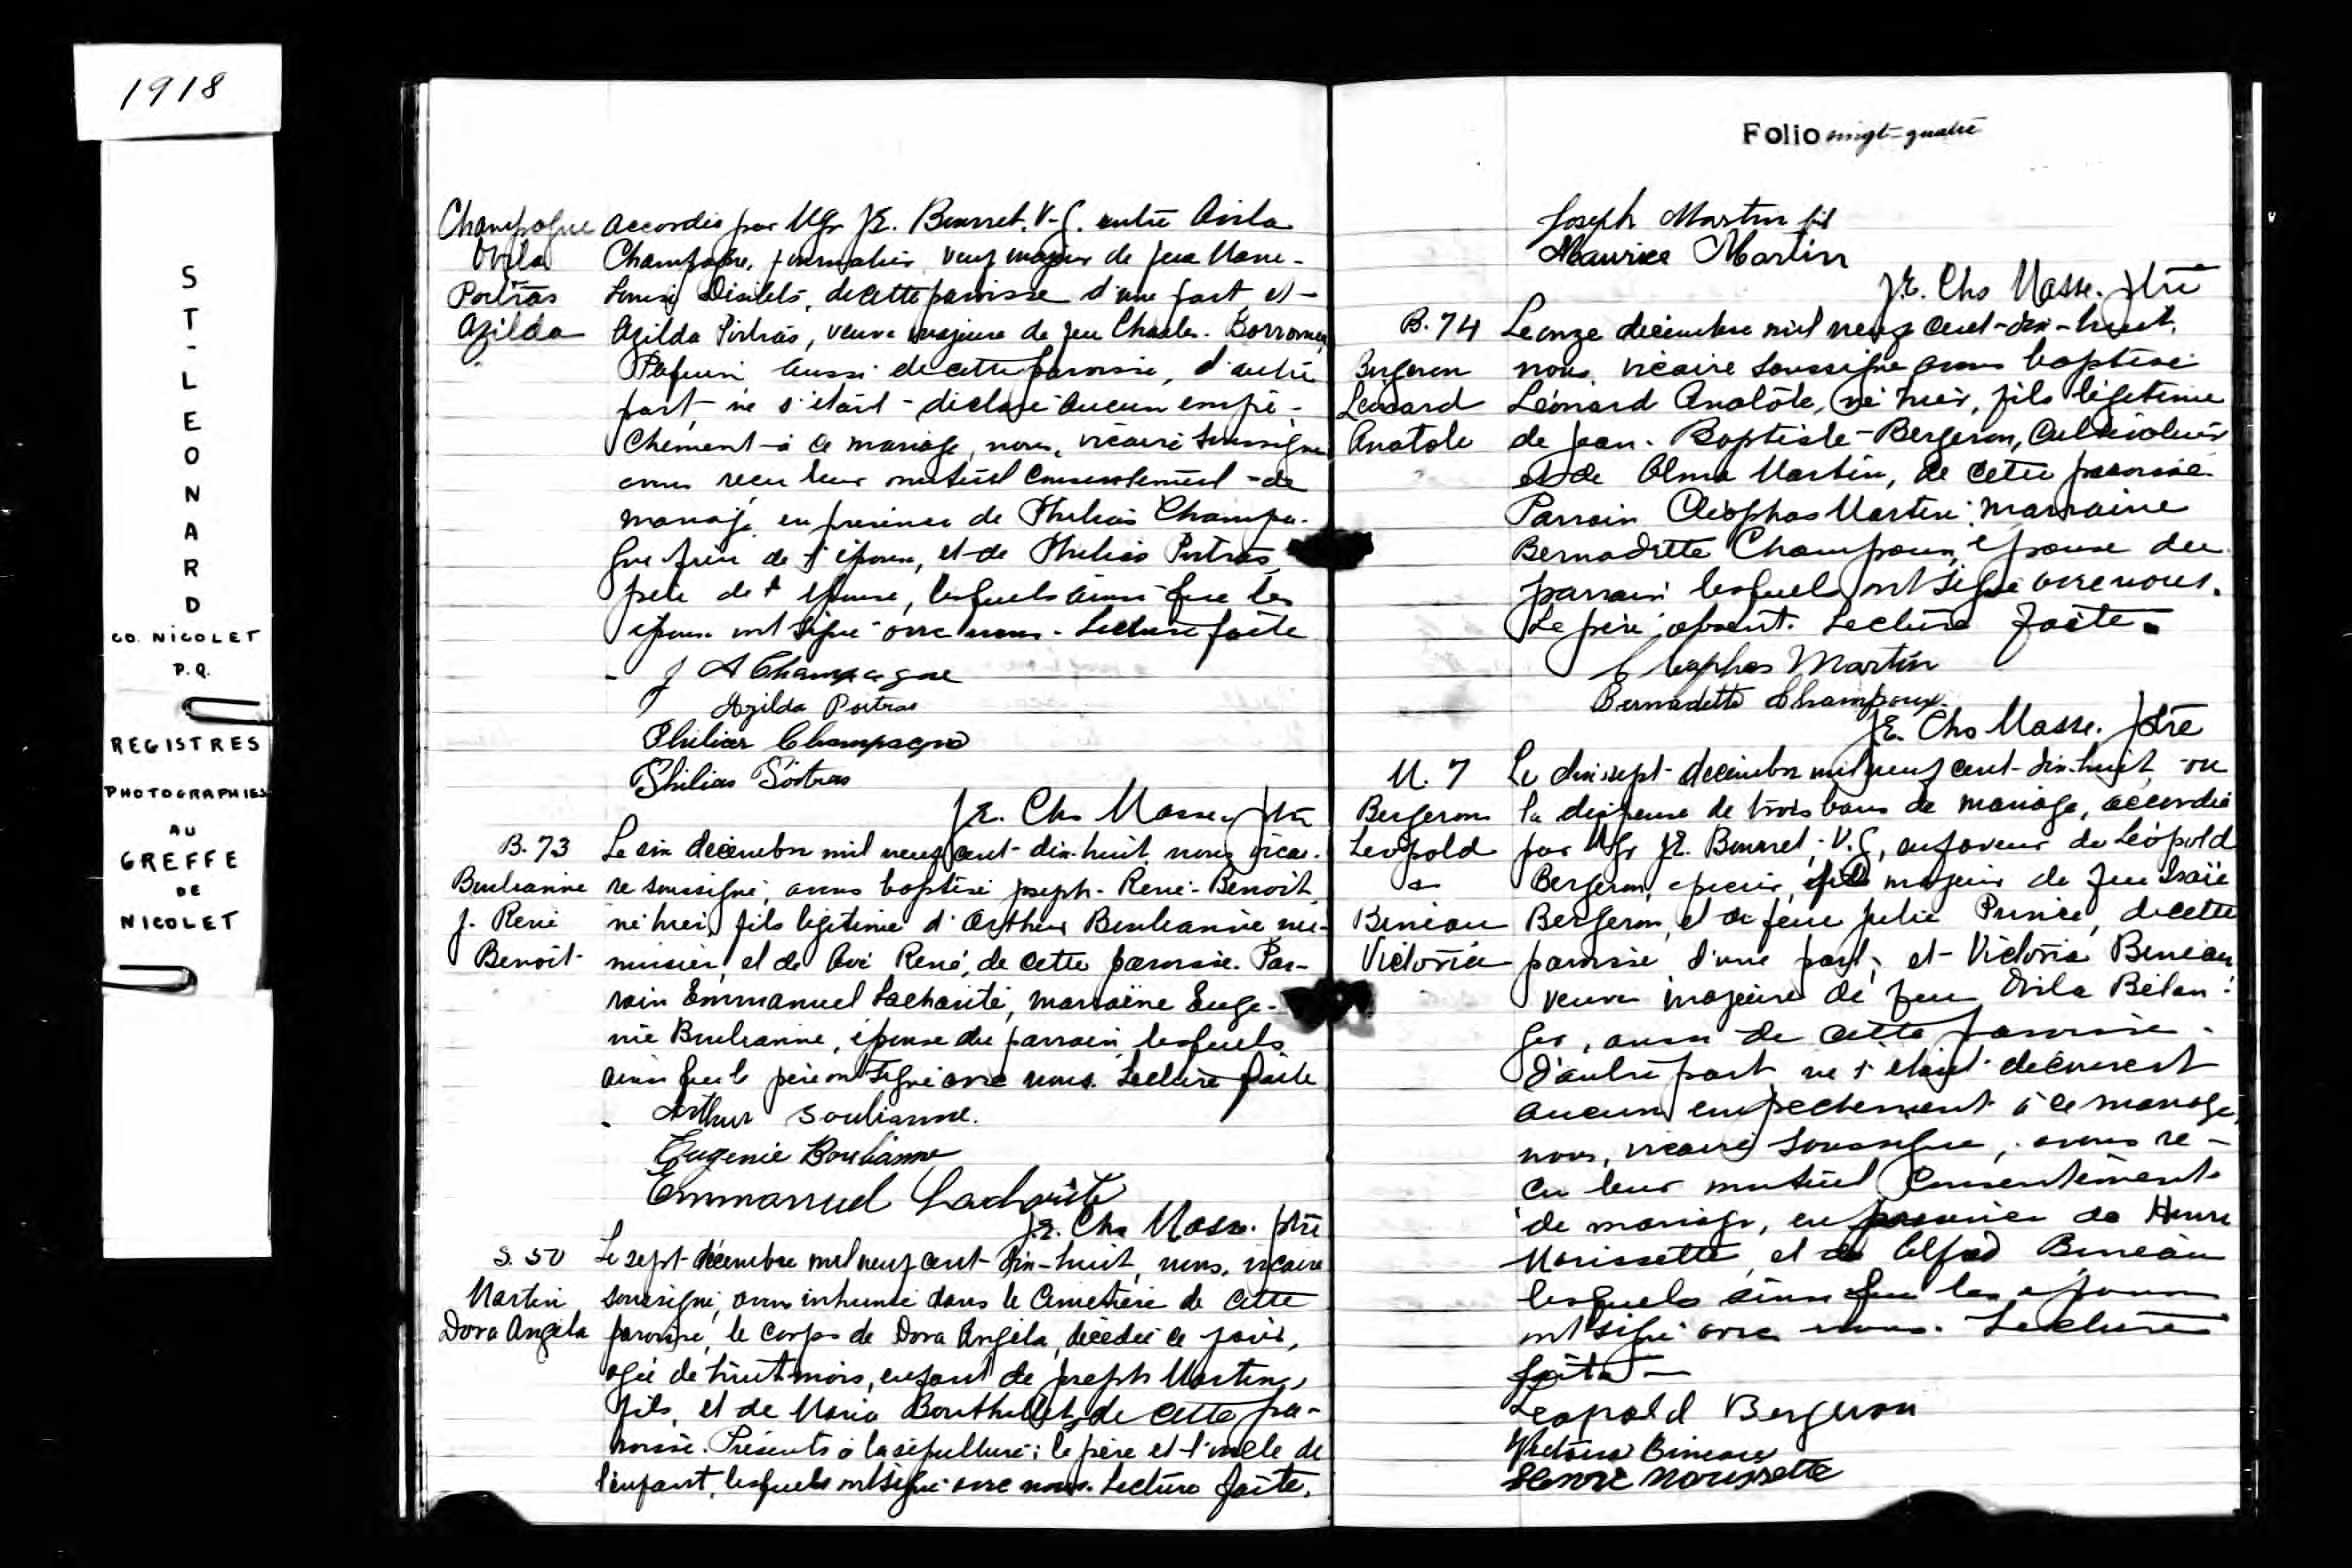 1918
ST-LEONARD
CO. NICOLET
P.Q.
REGISTRES
PHOTOGRAPHIES
AU
GREFFE
DE
NICOLET
Champagne
Avila
Poitras
Azilda
accordée par Mgr J.E. Bourret. V-G. entre Avila
Champagne, journalier, veuf majeur de feue Marie-
Louise Désilets, de cette paroisse d'une part et
Azilda Poitras, veuve majeure de feu Charles-Borromée
Paquin aussi de cette paroisse, d'autre
part ne s'étant déclaré aucun empê-
chement à ce mariage, nous, vicaire soussigné
avons reçu leur mutuel consentement de
mariage en présence de Philias Champa-
gne frère de l'époux, et de Philias Poitras,
père de l'épouse, lesquels ainsi que les
époux ont signé avec nous. Lecture faite
J A Champagne
Azilda Poitras
Philias Champagne
Philias Poitras
J.E. Chs Masse, ptre
B. 73
Boulianne
J. René
Benoit
Le six décembre mil neuf cent-dix-huit, nous vicai-
re soussigné, avons baptisé Joseph-René-Benoit,
né hier, fils légitime d'Arthur Boulianne me-
nuisier, et de René, de cette paroisse. Par-
rain Emmanuel Lacharité, marraine Eugé-
nie Boulianne, épouse du parrain lesquels
ainsi que le père ont signé avec nous. Lecture faite
Arthur Boulianne.
Eugenie Boulianne
Emmanuel Lacharité
J.E. Chs Masse. ptre
S. 50
Martin
Dora Angela
Le sept décembre mil neuf cent-dix-huit, nous, vicaire
soussigné, avons inhumé dans le cimetière de cette
paroisse, le corps de Dora Angéla, décédée ce jour,
agée de huit mois, enfant de Joseph Martin,
fils, et de Maria Bouthillet, de cette pa-
roisse. Présents à la sépulture: le père et l'oncle de
l'enfant, lesquels ont signé avec nous. Lecture faite.
Folio vingt-quatre
Joseph Martin fils
Maurice Martin
J.E. Chs Masse. ptre
B. 74
Bergeron
Léonard
Anatole
Le onze décembre mil neuf cent-dix-huit,
nous, vicaire soussigné avons baptisé
Léonard Anatole, né hier, fils légitime
de Jean-Baptiste-Bergeron, cultivateur
et de Alma Martin, de cette paroisse.
Parrain Cléophas Martin; marraine
Bernadette Champoux, épouse du
parrain lesquels ont signé avec nous.
Le père absent. Lecture faite.
Cleophas Martin
Bernadette Champoux
J.E. Chs Masse. ptre
M. 7
Bergeron
Leopold
&
Bineau
Victoria
Le dix-sept décembre mil neuf cent-dix-huit, vu
la dispense de trois bans de mariage, accordée
par Mgr J.E. Bourret, V.G, en faveur de Léopold
Bergeron, épicier, fils majeur de feu Isaïe
Bergeron, et de feue Julie Prince, de cette
paroisse d'une part, et Victoria Bineau
veuve majeure de feu Avila Bélan-
ger, aussi de cette paroisse
d'autre part ne s'étant découvert
aucun empêchement à ce mariage,
nous, vicaire soussigné, avons re-
çu leur mutuel consentement
de mariage, en présence de Henri
Morissette, et de Alfred Bineau
lesquels ainsi que les époux
ont signé avec nous. Lecture
faite
Leopold Bergeron
Victoria Bineau
Henri Morissette